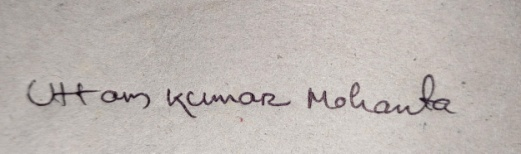 Uttam Kumar Mohanta